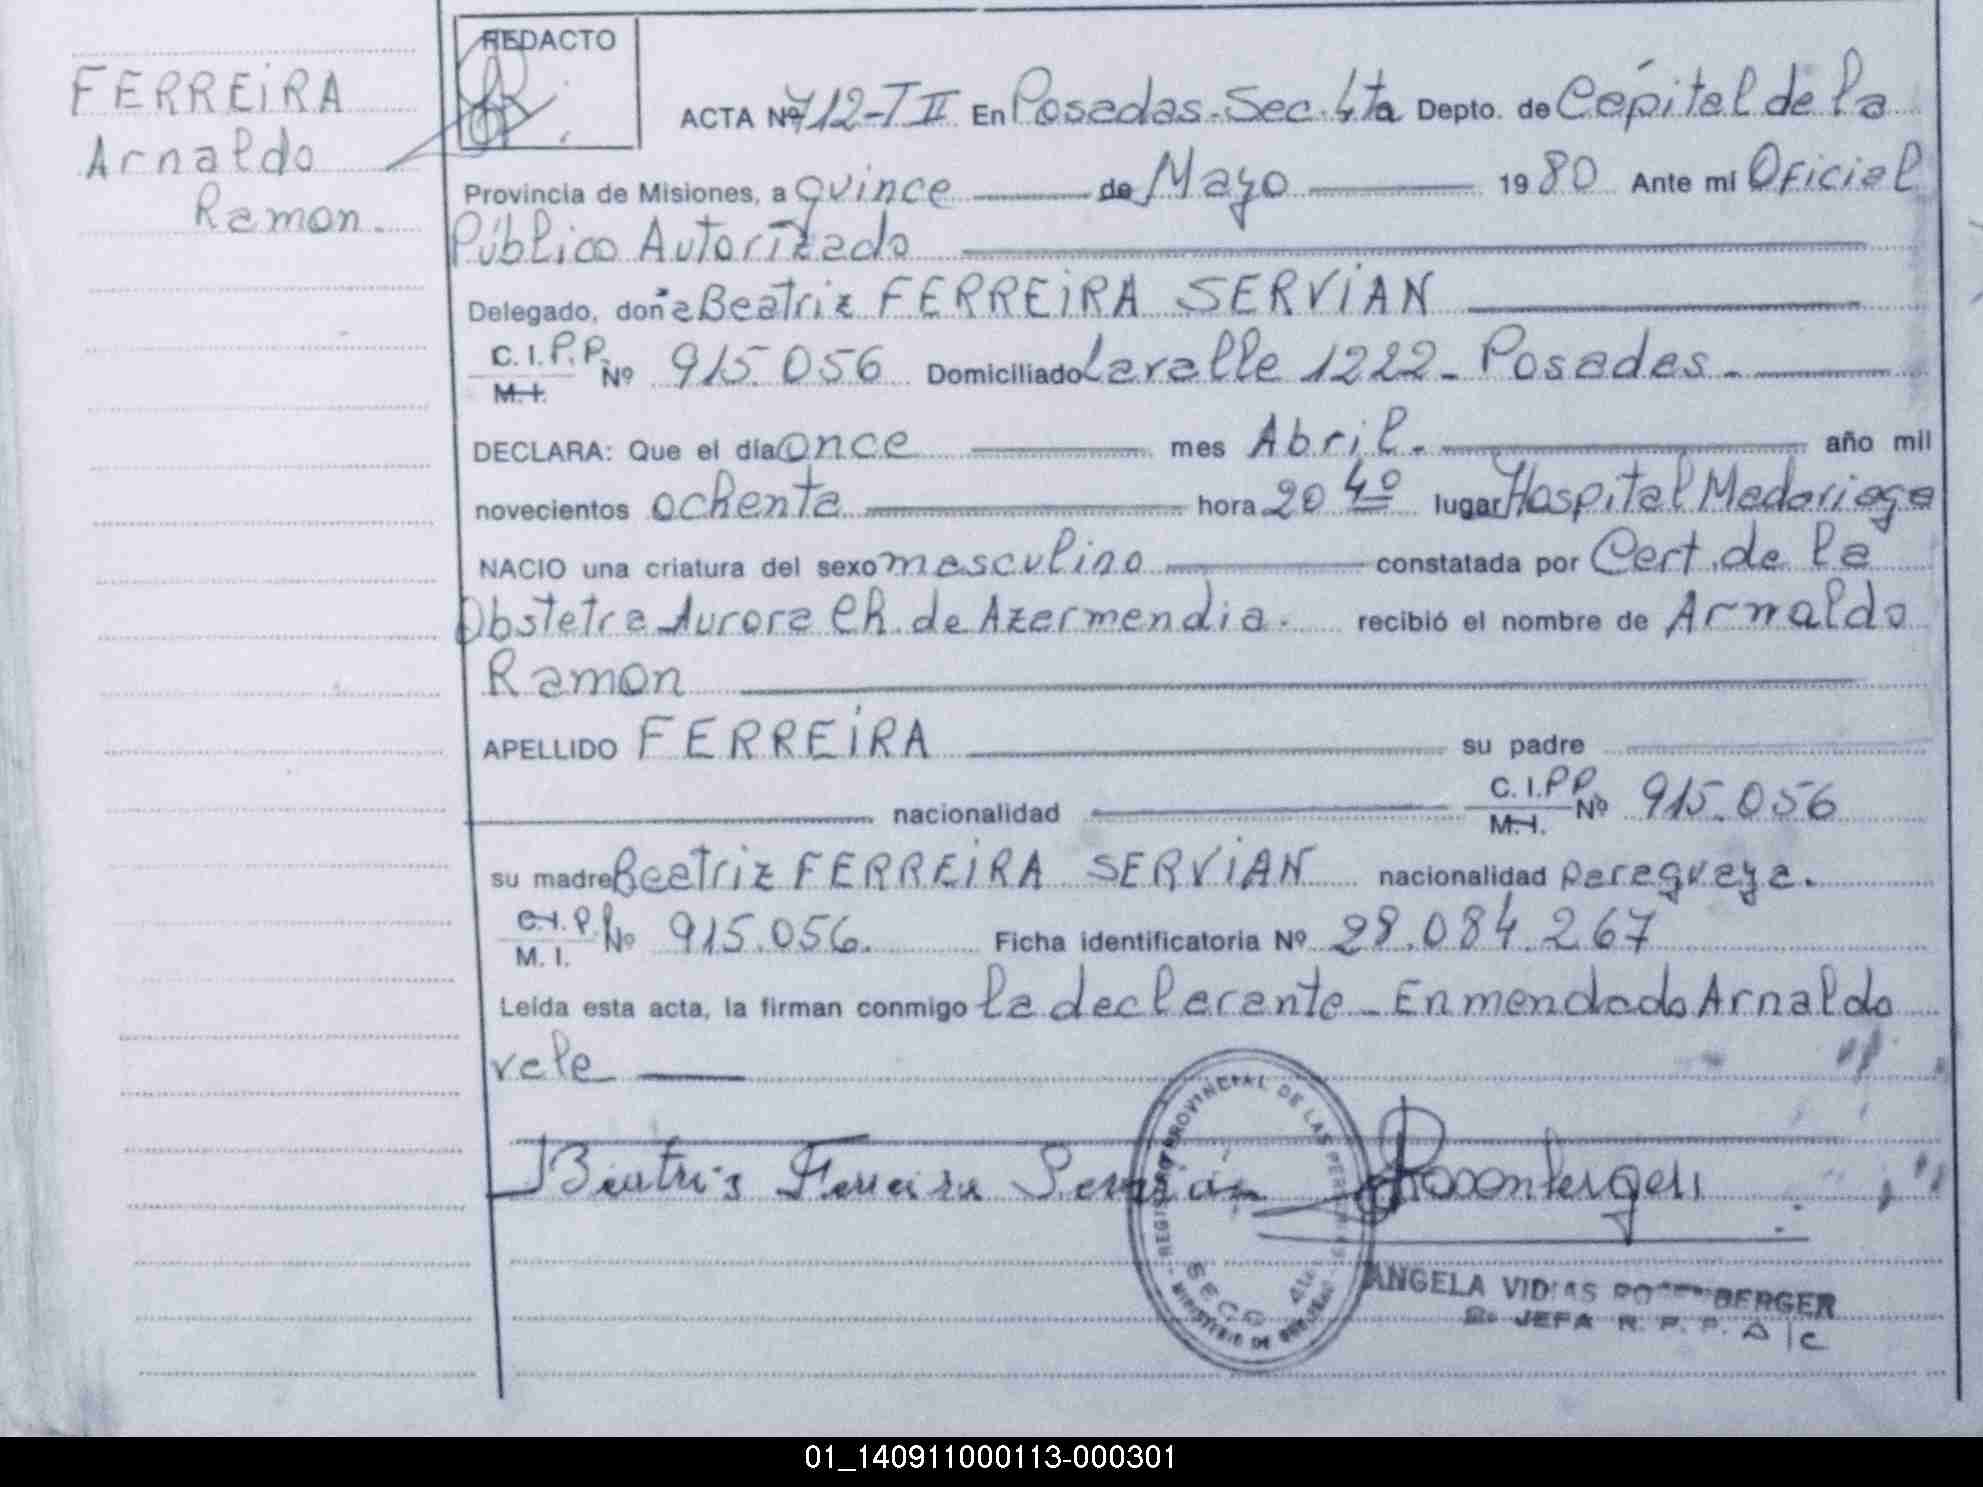 FERREIRA
Arnaldo
Ramon.
REDACTO
ACTA Nº 712-T II En Posadas-Sec. 4ta Depto. de Capital de la
Provincia de Misiones, a quince de Mayo 1980 Ante mi Oficial
Público Autorizado
Delegado, doña Beatriz FERREIRA SERVIAN
C. I. P. P. Nº 915.056 Domiciliado Lavalle 1222 - Posadas -
M. I.
DECLARA: Que el día once mes Abril. año mil
novecientos ochenta hora 20 40 lugar Hospital Madariaga
NACIO una criatura del sexo masculino constatada por Cert. de la
Obstetra Aurora Ch. de Azarmendia. recibió el nombre de Arnaldo
Ramon
APELLIDO FERREIRA su padre
nacionalidad C. I. P P. Nº 915.056
M. I.
su madre Beatriz FERREIRA SERVIAN nacionalidad paraguaya.
C. I. P. P. Nº 915.056. Ficha identificatoria Nº 28.084.267
M. I.
Leída esta acta, la firman conmigo la declarante - Enmendado Arnaldo
vale
Beatris Ferreira Servian
REGISTRO PROVINCIAL DE LAS PERSONAS
SECC. 4ta.
MINISTERIO DE GOBIERNO
ANGELA VIDIAS ROSENBERGER
JEFA R. P. P. A/C
01_140911000113-000301